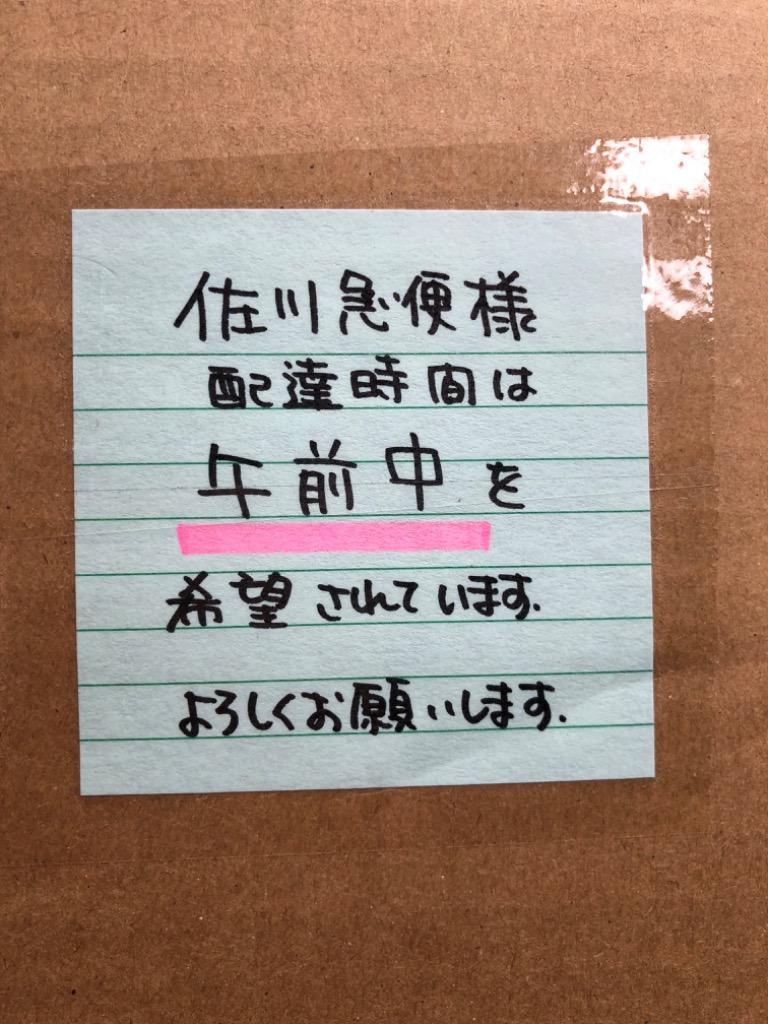 佐川急便様
配達時間は
午前中を
希望されています.
よろしくお願いします.